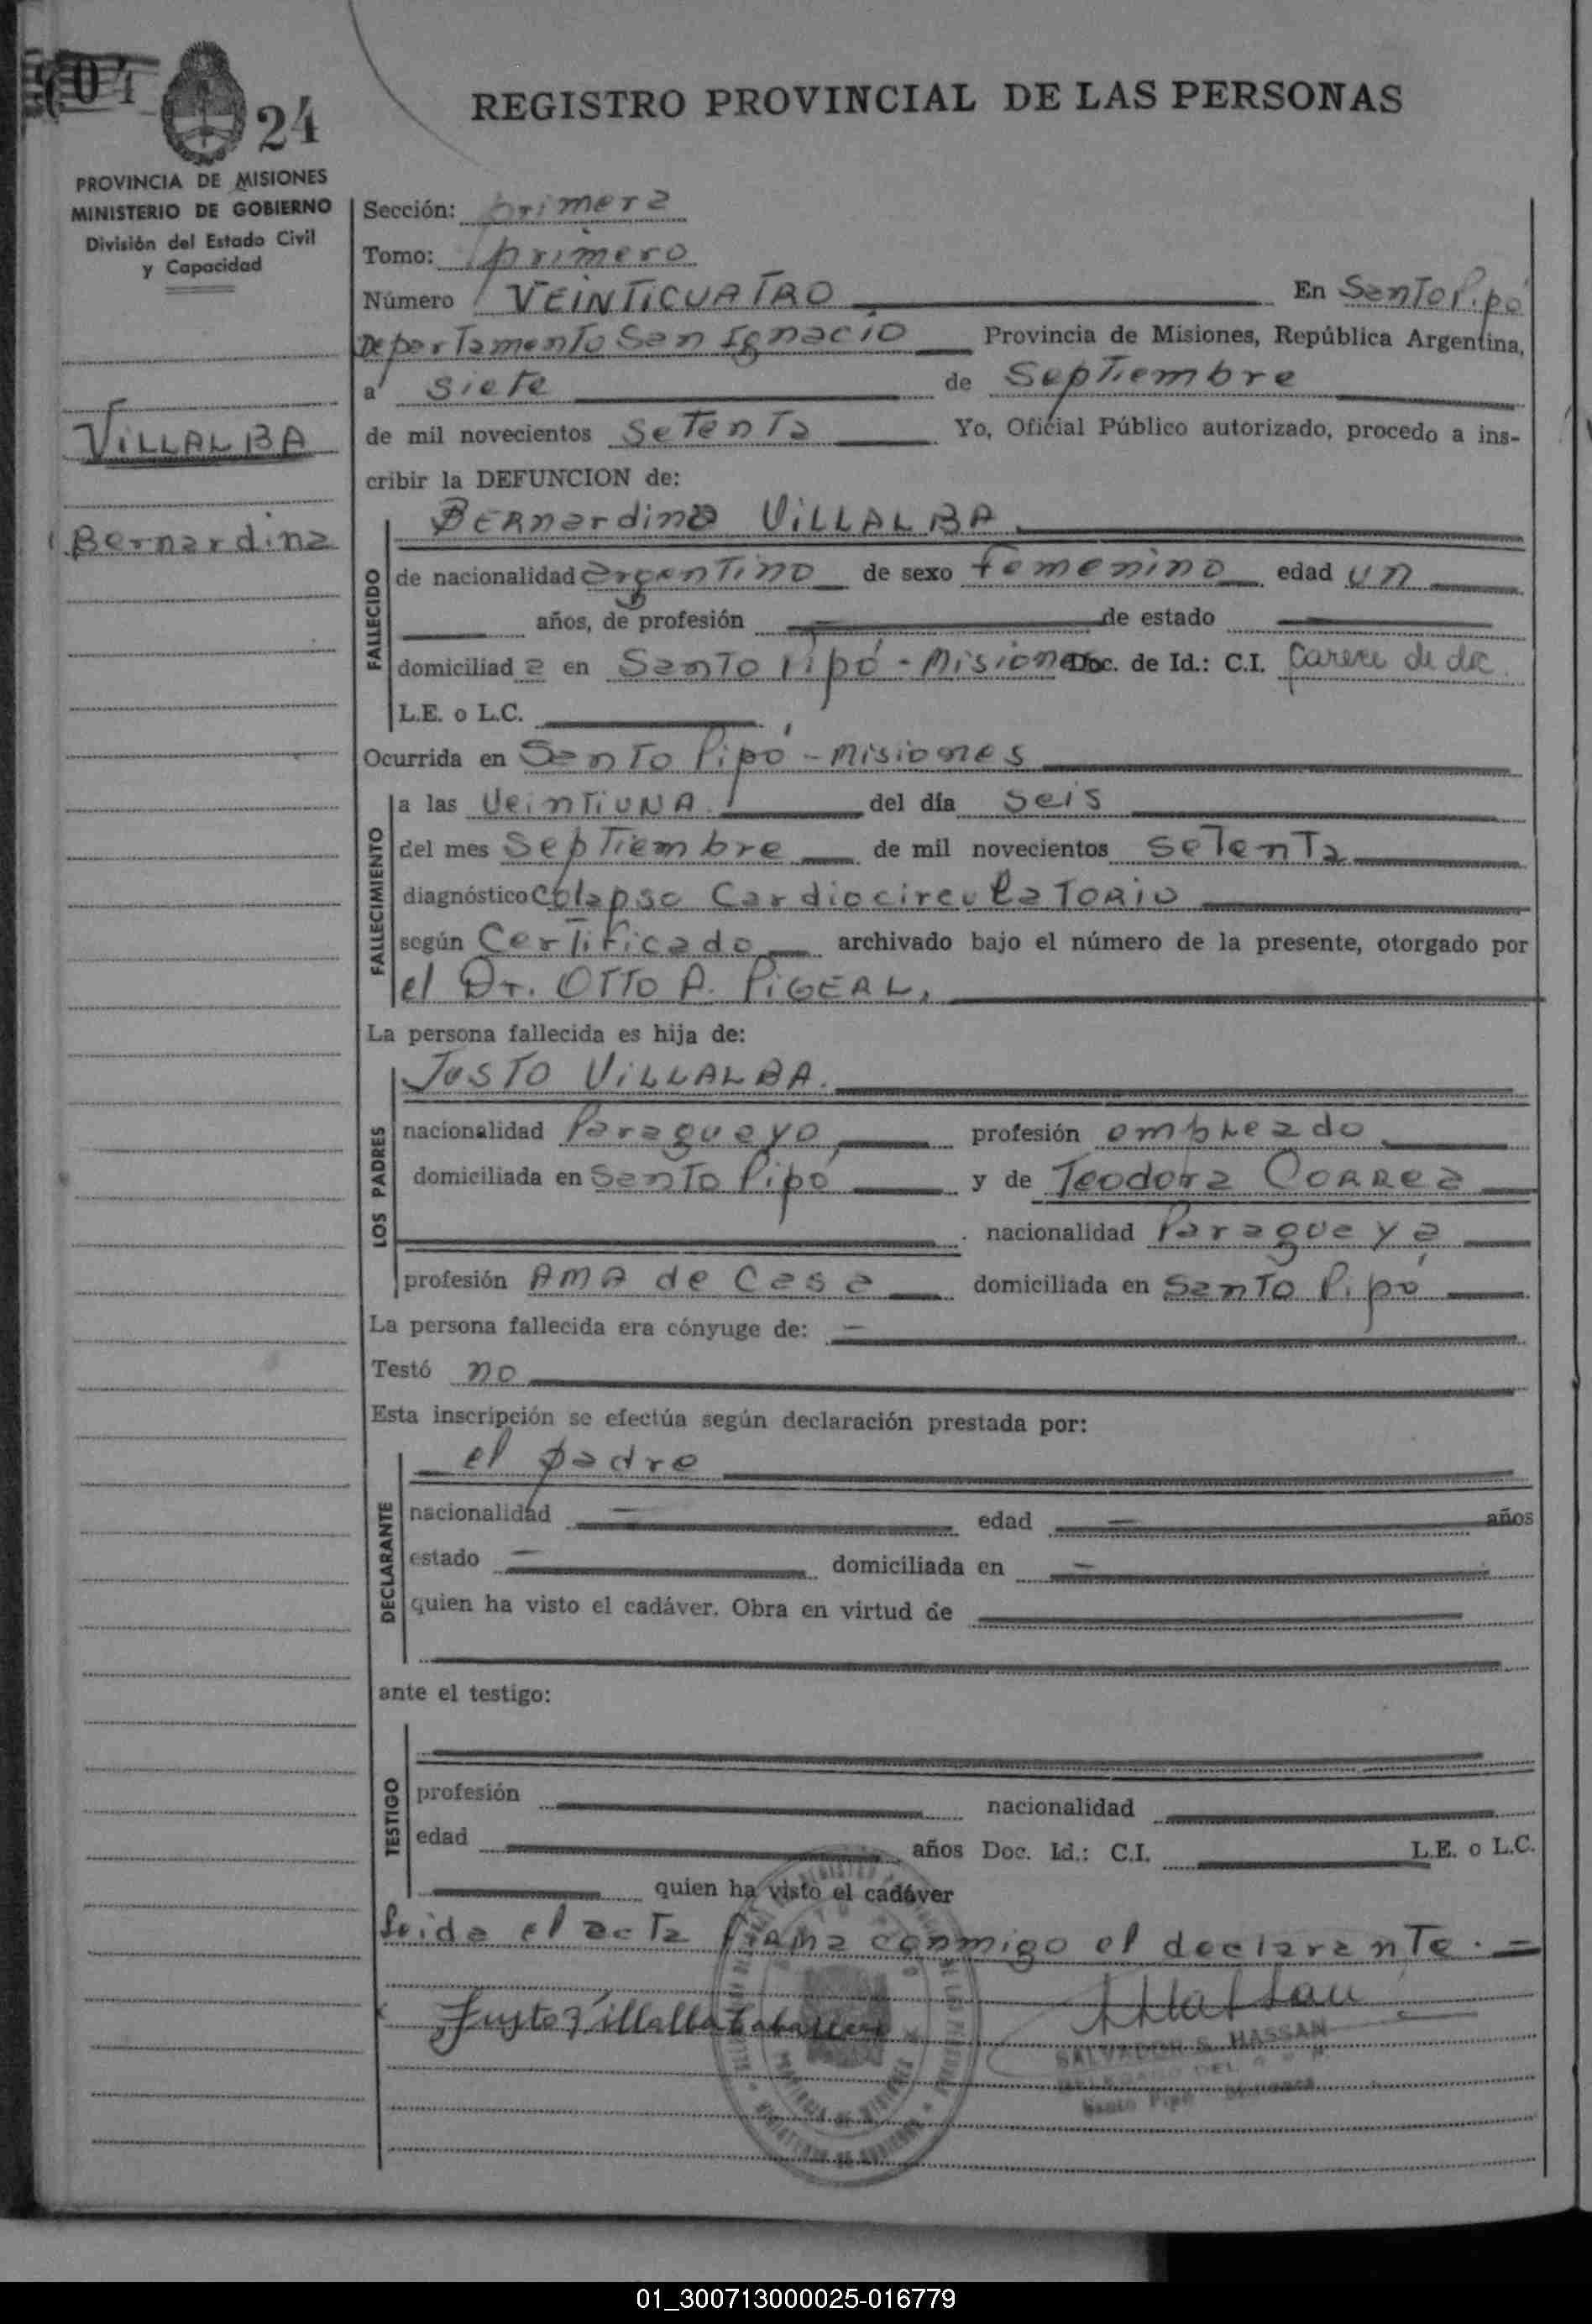 24
REGISTRO PROVINCIAL DE LAS PERSONAS
PROVINCIA DE MISIONES
MINISTERIO DE GOBIERNO
División del Estado Civil
y Capacidad
VILLALBA
Bernardina
Sección: primera
Tomo: primero
Número VEINTICUATRO En Santo Pipó
Departamento San Ignacio Provincia de Misiones, República Argentina,
a siete de Septiembre
de mil novecientos setenta Yo, Oficial Público autorizado, procedo a ins-
cribir la DEFUNCION de:
FALLECIDO
Bernardina VILLALBA
de nacionalidad argentino de sexo femenino edad un
años, de profesión de estado
domiciliada en Santo Pipó - Misiones Doc. de Id.: C.I. Carece de doc.
L.E. o L.C.
Ocurrida en Santo Pipó - Misiones
FALLECIMIENTO
a las veintiUNA del día seis
del mes Septiembre de mil novecientos setenta
diagnóstico Colapso CardiocirculaTORIO
según Certificado archivado bajo el número de la presente, otorgado por
el Dr. OTTO A. PIGERL.
La persona fallecida es hija de:
LOS PADRES
JUSTO VILLALBA.
nacionalidad Paragueyo, profesión empleado
domiciliada en Santo Pipó y de Teodora CORREA
nacionalidad Paragueya
profesión AMA de Casa domiciliada en Santo Pipó
La persona fallecida era cónyuge de: —
Testó no
Esta inscripción se efectúa según declaración prestada por:
DECLARANTE
el padre
nacionalidad — edad — años
estado — domiciliada en —
quien ha visto el cadáver. Obra en virtud de
ante el testigo:
TESTIGO
profesión nacionalidad
edad años Doc. Id.: C.I. L.E. o L.C.
quien ha visto el cadáver
Leida el acta firma conmigo el declarante. =
Justo Villalba
SALVADOR S. HASSAN
Santo Pipó Misiones
01_300713000025-016779